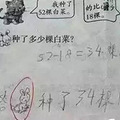 我种了
52棵白菜。
的比
18棵。
种了多少棵白菜?
52-18=34棵
种了34棵